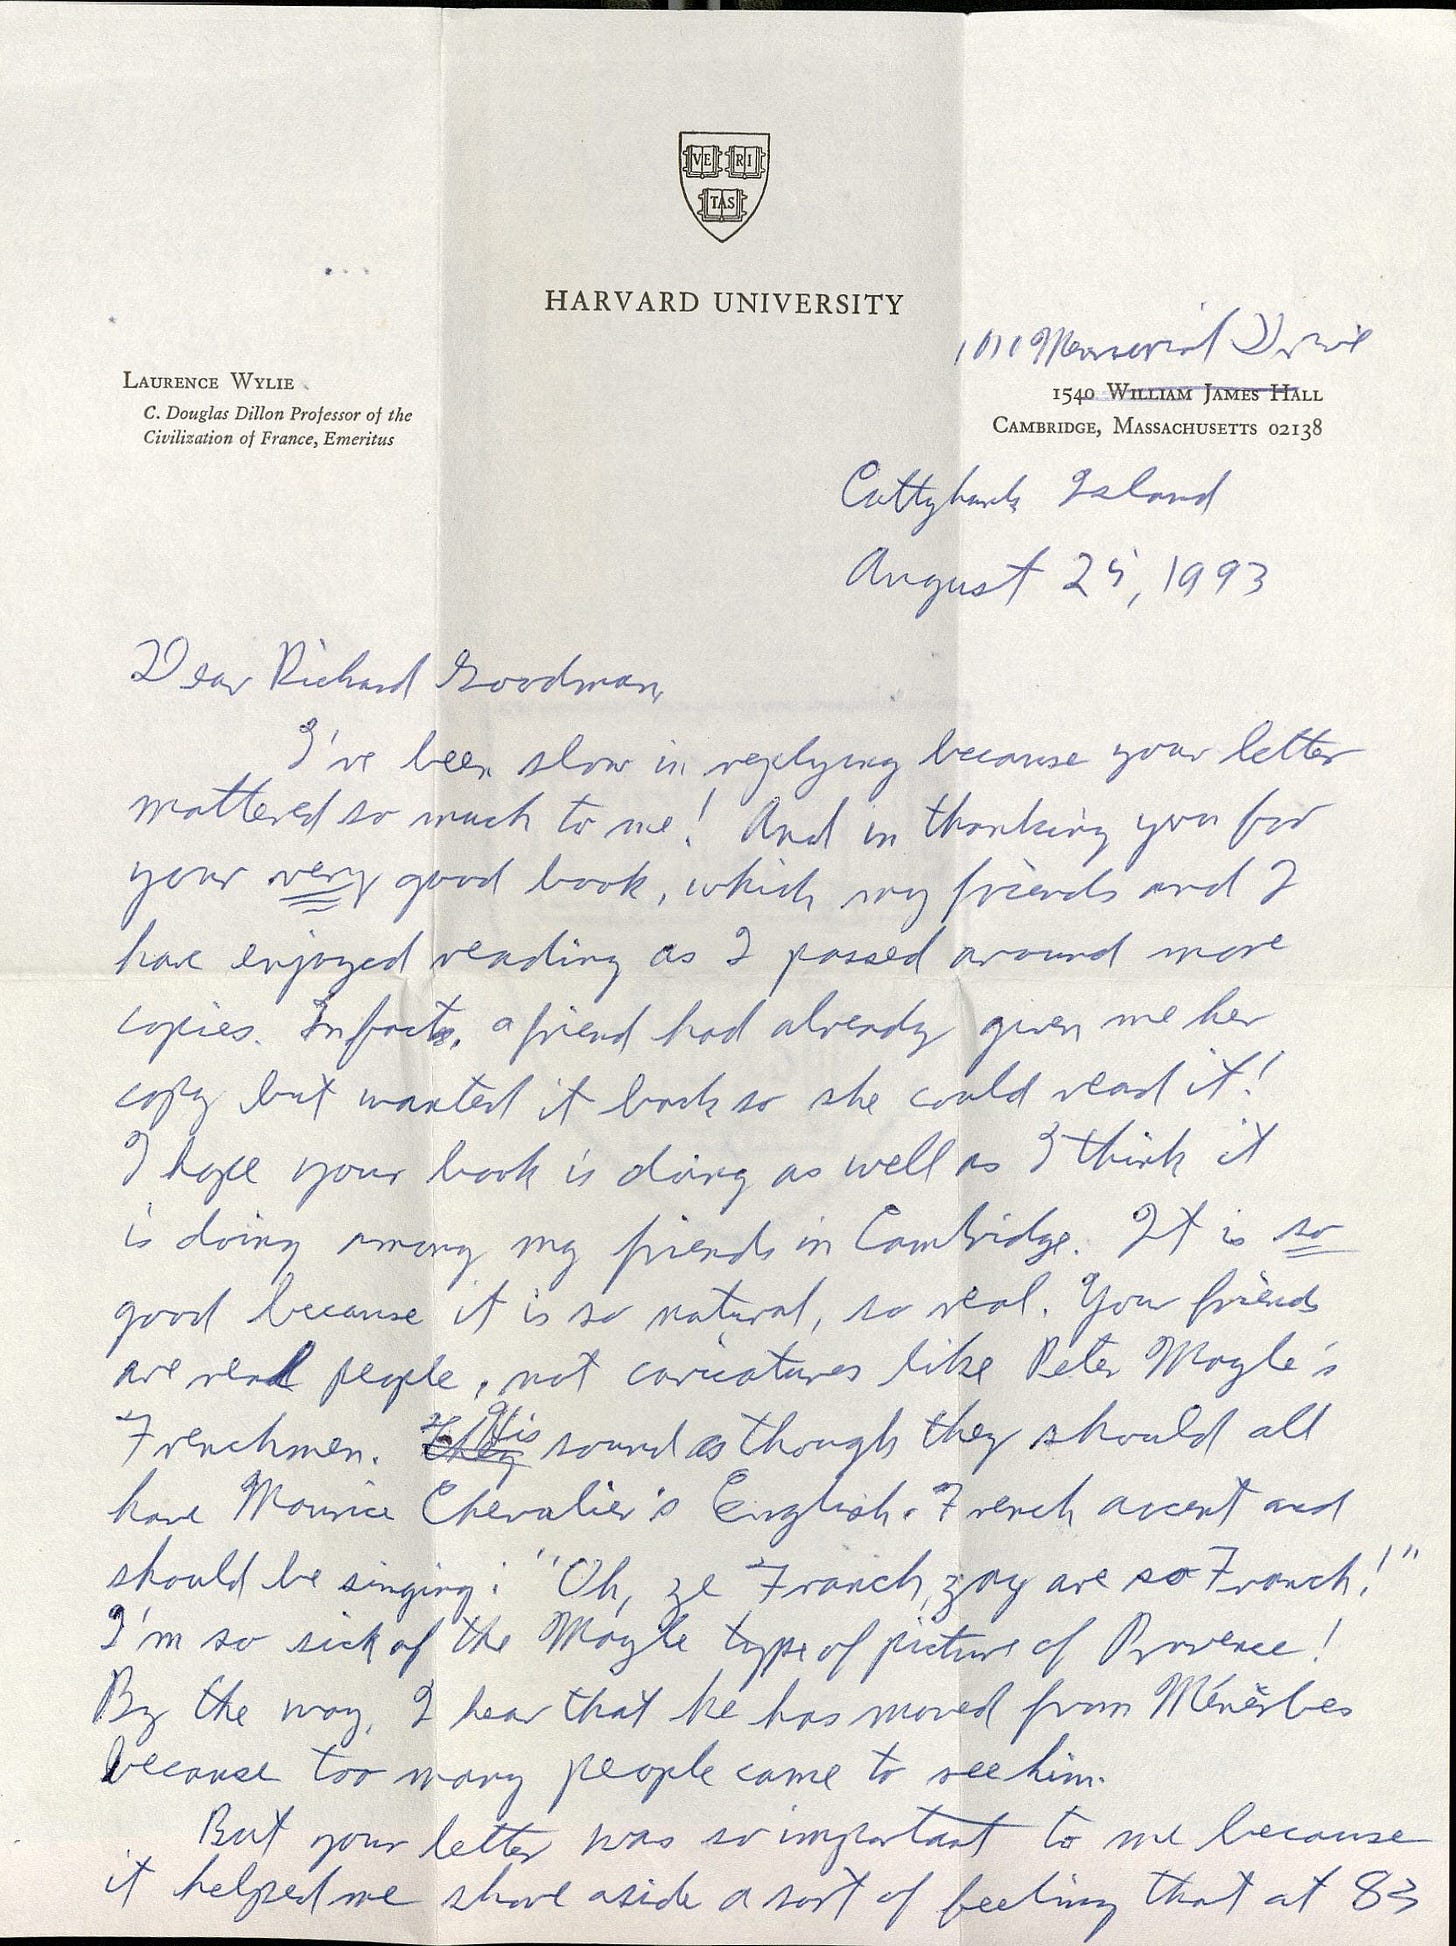 VE RI
TAS
HARVARD UNIVERSITY
1010 Memorial Drive
LAURENCE WYLIE
C. Douglas Dillon Professor of the
Civilization of France, Emeritus
1540 WILLIAM JAMES HALL
CAMBRIDGE, MASSACHUSETTS 02138
Cuttyhunk Island
August 25, 1993
Dear Richard Goodman,
I've been slow in replying because your letter
mattered so much to me! And in thanking you for
your very good book, which my friends and I
have enjoyed reading as I passed around more
copies. In fact, a friend had already given me her
copy but wanted it back so she could read it!
I hope your book is doing as well as I think it
is doing among my friends in Cambridge. It is so
good because it is so natural, so real. Your friends
are real people, not caricatures like Peter Mayle's
Frenchmen. They His sound as though they should all
have Maurice Chevalier's English-French accent and
should be singing: "Oh, ze Franch, zay are so Franch!"
I'm so sick of the Mayle type of picture of Provence!
By the way, I hear that he has moved from Ménèrbes
because too many people came to see him.
But your letter was so important to me because
it helped me shove aside a sort of feeling that at 83